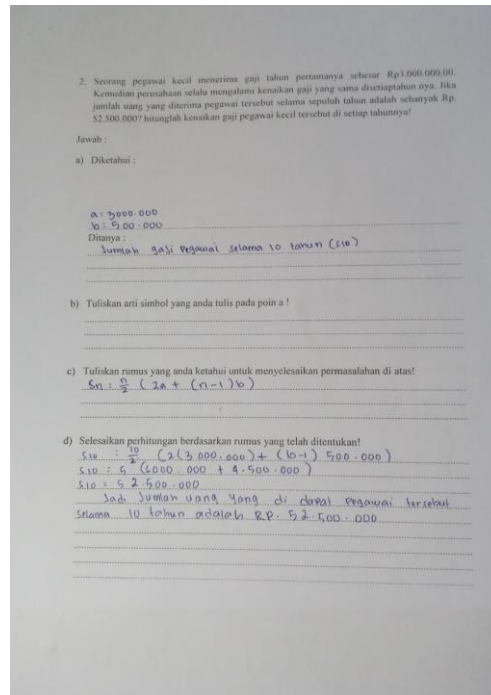 2. Seorang pegawai kecil menerima gaji tahun pertamanya sebesar Rp3.000.000,00.
Kemudian perusahaan selalu mengalami kenaikan gaji yang sama disetiaptahun nya. Jika
jumlah uang yang diterima pegawai tersebut selama sepuluh tahun adalah sebanyak Rp.
52.500.000? hitunglah kenaikan gaji pegawai kecil tersebut di setiap tahunnya!
Jawab :
a) Diketahui :
a : 3000.000
b : 500.000
Ditanya :
Jumlah gaji pegawai selama 10 tahun (S10)
b) Tuliskan arti simbol yang anda tulis pada poin a !
c) Tuliskan rumus yang anda ketahui untuk menyelesaikan permasalahan di atas!
Sn : n/2 ( 2a + (n-1) b )
d) Selesaikan perhitungan berdasarkan rumus yang telah ditentukan!
S10 : 10/2 (2(3.000.000) + (10-1) 500.000)
S10 : 5 (6000.000 + 4.500.000)
S10 = 52.500.000
Jadi Jumlah uang yang di dapat pegawai tersebut
selama 10 tahun adalah RP. 52.500.000